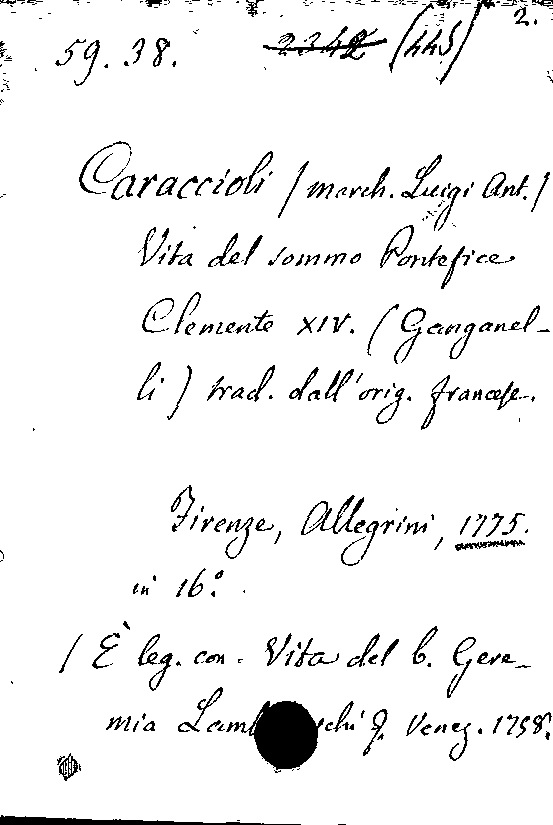 2.
59.38. 2342 (445)
Caraccioli / march. Luigi Ant. /
Vita del sommo Pontefice
Clemente XIV. (Ganganel-
li) trad. dall'orig. francese.
Firenze, Allegrini, 1775.
in 16.°
/ È leg. con. Vita del b. Gere-
mia Lamb chi Venez. 1758.